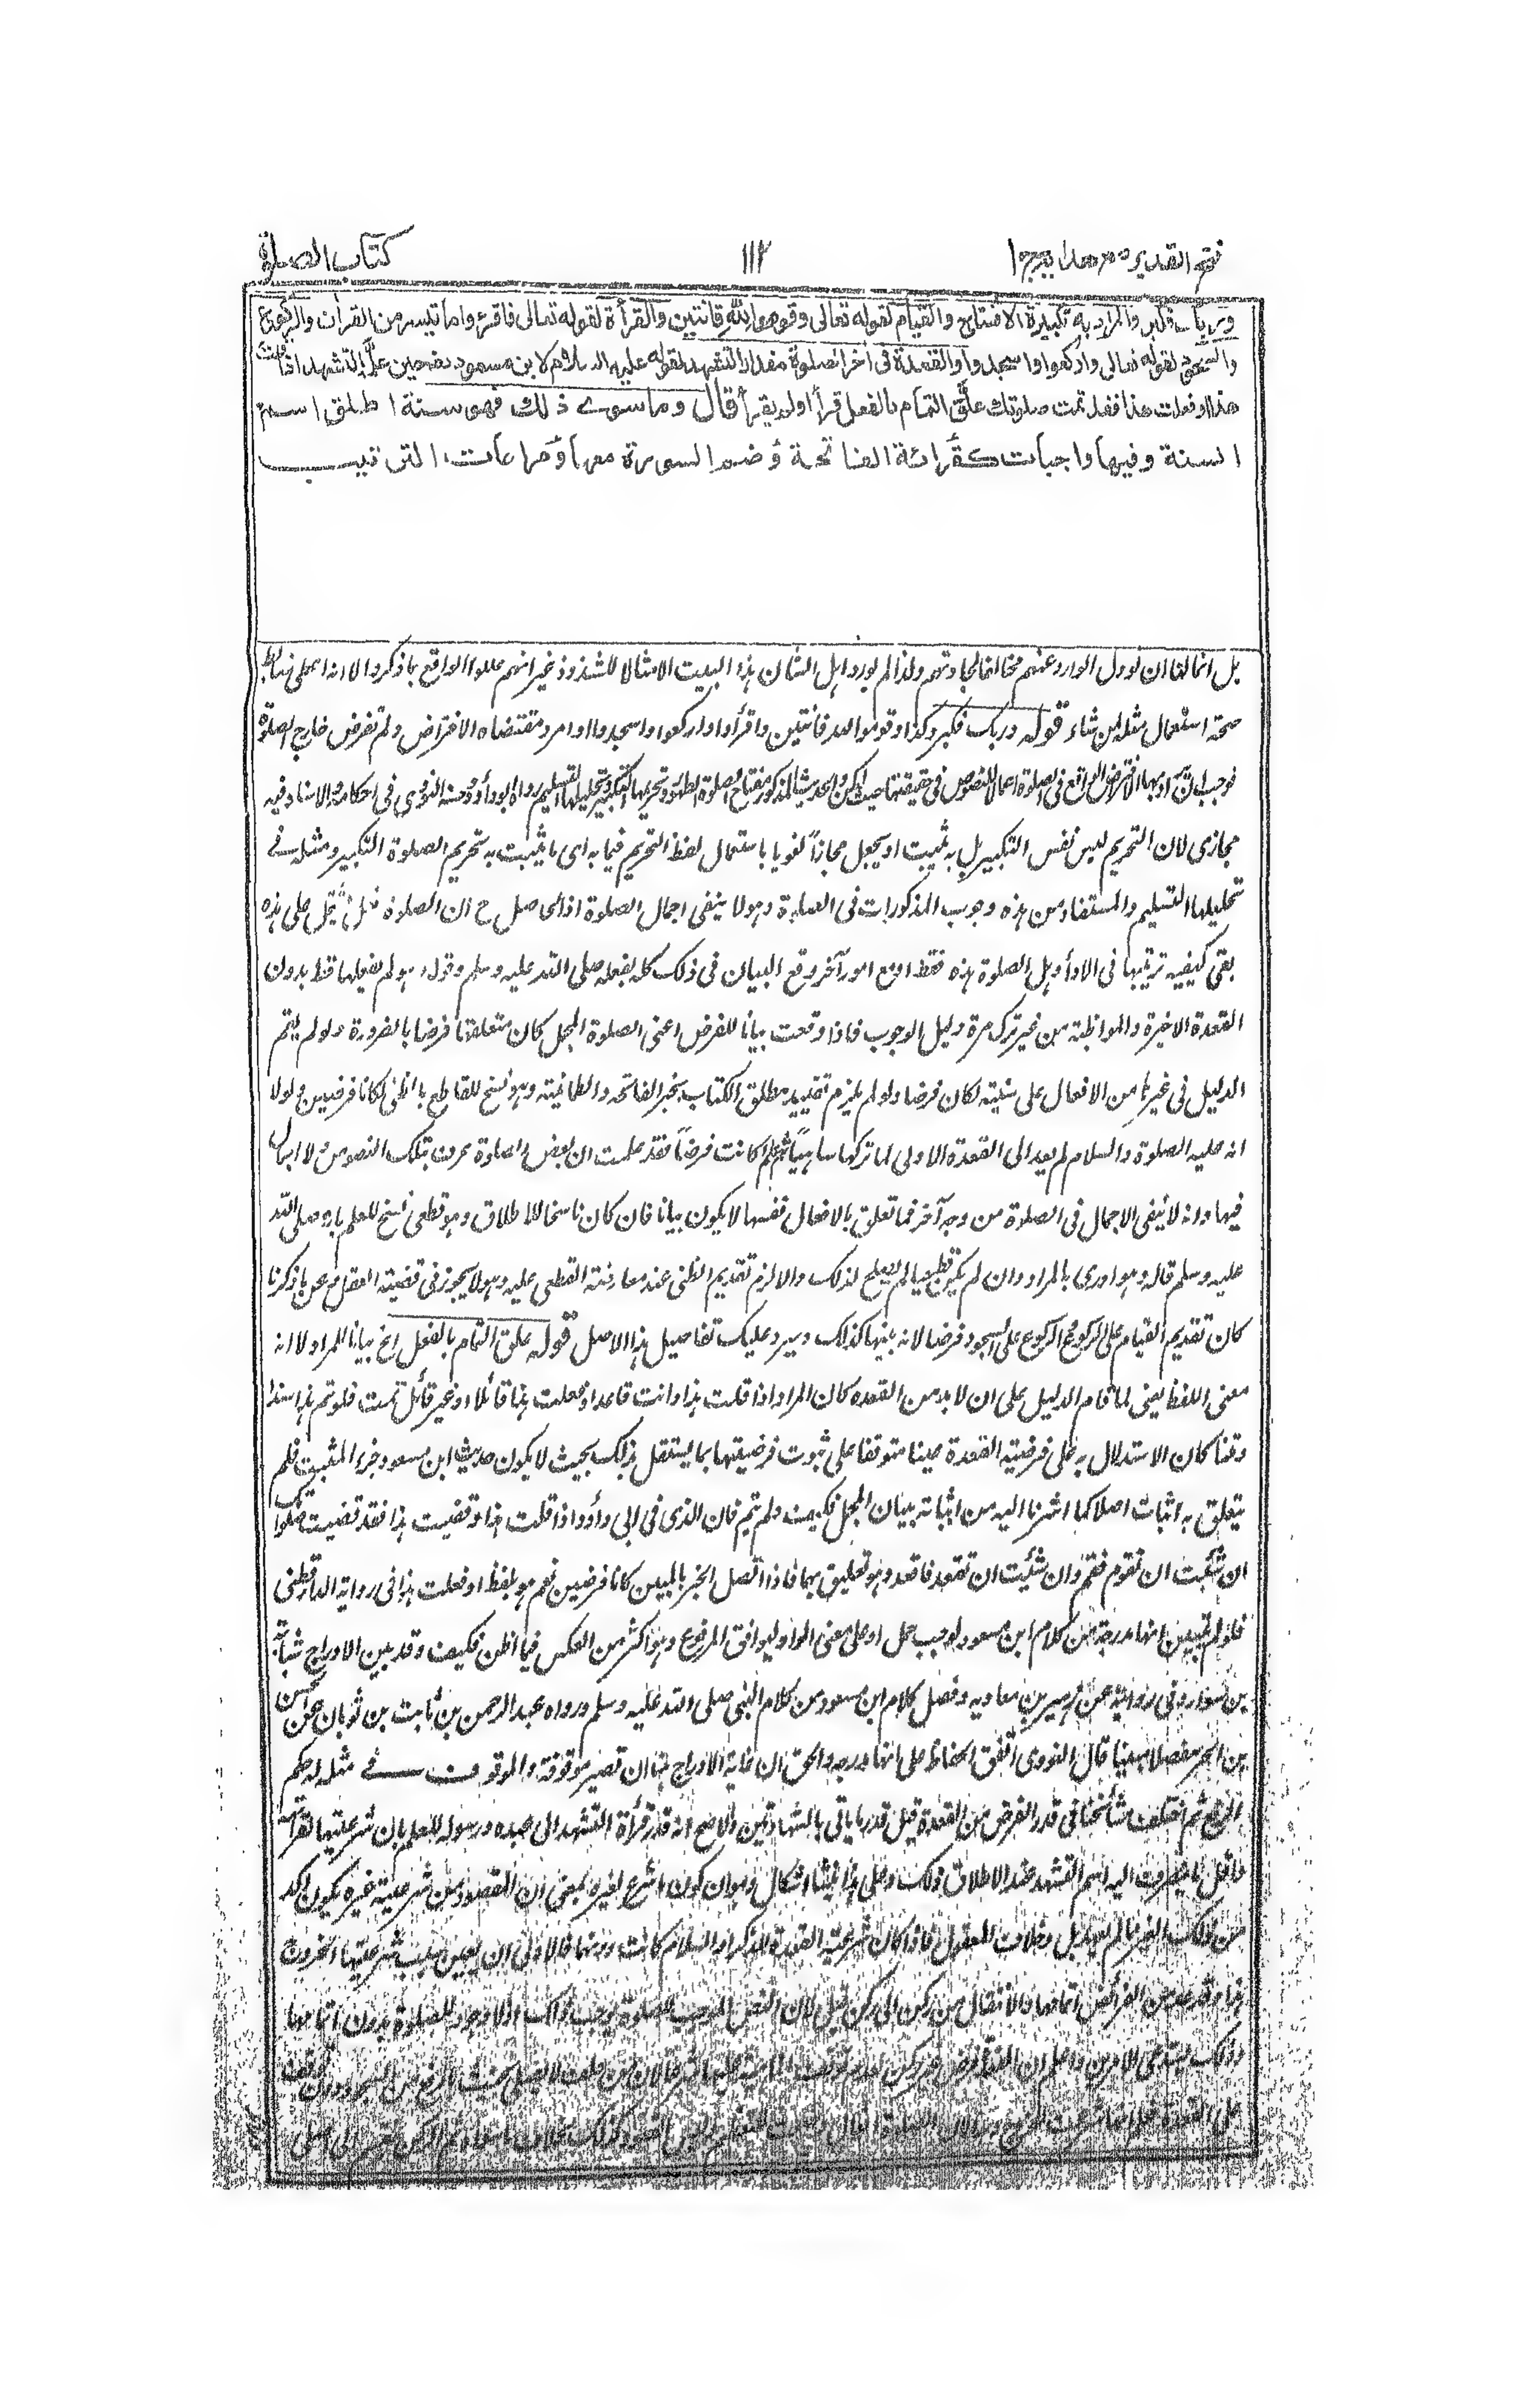 فتح القدير مع هداية ج ١
١١٢
كتاب الصلوة
وربك فكبر والمراد به تكبيرة الافتتاح والقيام لقوله تعالى وقوموا لله قانتين والقرأة لقوله تعالى فاقرؤا ما تيسر من القران والركوع
والسجود لقوله تعالى واركعوا واسجدوا والقعدة في اخر الصلوة مقدار التشهد لقوله عليه السلام لابن مسعود رض حين علمه التشهد اذا قلت
هذا او فعلت هذا فقد تمت صلوتك علق التمام بالفعل قرأ او لم يقرأ قال وما سوى ذلك فهو سنة اطلق اسم
السنة وفيها واجبات كقرائة الفاتحة وضم السورة معها ومراعات الترتيب
بل انما لنا ان نوول الوارد عنهم مخالفا لجادتهم ولذا لم يورد اهل الشان هذا البيت الا مثالا للشذوذ غير انهم عللوا الواقع بما ذكروا لا انه اعطى ضابط
صحة استعمال مثله لمن شاء قوله وربك فكبر وكذا وقوموا لله قانتين واقرأوا واركعوا واسجدوا اوامر ومقتضاه الافتراض ولم تفرض خارج الصلوة
فوجب ان يراد بها الافتراض الواقع في الصلوة اعمالا للنصوص في حقيقتها حيث امكن والحديث المذكور مفتاح الصلوة الطهور وتحريمها التكبير وتحليلها التسليم رواه ابو داؤد وحسنه النووي في احكامه والاسناد فيه
مجازى لان التحريم ليس نفس التكبير بل به يثبت او يجعل مجازاً لغويا باستعمال لفظ التحريم فيما به اى ما يثبت به تحريم الصلوة التكبير ومثله في
تحليلها التسليم والمستفاد من هذه وجوب المذكورات فى الصلوة وهو لا ينفى اجمال الصلوة اذ الحاصل ح ان الصلوة فعل يشتمل على هذه
بقى كيفية ترتيبها فى الاداء وهل الصلوة هذه فقط او مع امور آخر وقع البيان فى ذلك كله بفعله صلى الله عليه وسلم وقوله وهو لم يفعلها قط بدون
القعدة الاخيرة والمواظبة من غير ترك مرة دليل الوجوب فاذا وقعت بيانا للفرض اعنى الصلوة المجمل كان متعلقها فرضا بالضرورة ولو لم يقم
الدليل فى غيرها من الافعال على سنيته لكان فرضا ولو لم يلزم تقييد مطلق الكتاب بخبر الفاتحه والطمانينة وهو نسخ للقاطع بالظنى لكانا فرضين ولولا
انه عليه الصلوة والسلام لم يعد الى القعدة الاولى لما تركها ساهياً ثم علم كانت فرضاً فقد علمت ان بعض الصلوة عرف بتلك النصوص ولا اجمال
فيها وانه لا ينفى الاجمال فى الصلوة من وجه آخر فما تعلق بالافعال نفسها لا يكون بيانا فان كان ناسخا للاطلاق وهو قطعى نسخ للعلم بانه صلى الله
عليه وسلم قاله وهو ادرى بالمراد وان لم يكن قطعيا لم يصلح لذلك والا لزم تقديم الظنى عند معارضته القطعى عليه وهو لا يجوز فى قضية العقل وعن ما ذكرنا
كان تقديم القيام على الركوع والركوع على السجود فرضا لانه بينها كذلك وسيرد عليك تفاصيل هذا الاصل قوله علق التمام بالفعل الخ بيانا للمراد لا انه
معنى اللفظ يعنى لما قام الدليل على ان لابد من القعدة كان المراد اذا قلت هذا وانت قاعد او فعلت هذا قائلا او غير قائل تمت فلو تم هذا سندا
ومتنا كان الاستدلال به على فرضية القعدة عينا متوقفا على ثبوت فرضيتها بما يستقل بذلك بحيث لا يكون حديث ابن مسعود جزء المثبت فلم
يتعلق به اثبات اصلا كما اشرنا اليه من اثباته ببيان المجمل فكيف ولم يتم فان الذى فى ابى داؤد اذا قلت هذا وقضيت هذا فقد قضيت صلوتك
ان شئت ان تقوم فقم وان شئت ان تقعد فاقعد وهو تعليق بهما فاذا اتصل الخبر بالمبين كانا فرضين نعم هو بلفظ او فعلت هذا فى رواية الدارقطنى
فلو لم تبين انها مدرجة من كلام ابن مسعود لوجب حمل او على معنى الواو ليوافق المرفوع وهو اكثر من العكس فيما اظن فكيف وقد بين الادراج شبابة
بن سوار فى روايته عن زهير بن معاوية وفصل كلام ابن مسعود من كلام النبى صلى الله عليه وسلم ورواه عبد الرحمن بن ثابت بن ثوبان عن الحسن
بن الحر مفصلا مبينا قال النووى اتفق الحفاظ على انها مدرجة والحق ان غاية الادراج هنا ان تصير موقوفة والموقوف فى مثله له حكم
الرفع ثم اختلف مشائخنا فى قدر الفرض من القعدة قيل قدر ما ياتى بالشهادتين والاصح انه قدر قرأة التشهد الى عبده ورسوله للعلم بان شرعيتها لقرأته
واقل ما ينصرف اليه اسم التشهد عند الاطلاق ذلك وعلى هذا ينشأ اشكال وهو ان كون ما شرع لغيره بمعنى ان المقصود من شرعيته غيره يكون آكد
من ذلك الغير مما لم يعهد بل وخلاف المعقول فاذا كان شرعية القعدة للذكر او السلام كانت دونهما فالاولى ان يعين سبب شرعيتها الخروج